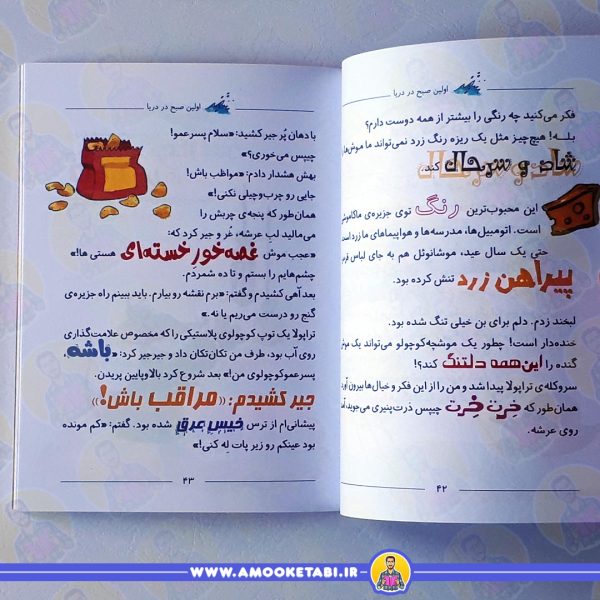 اولین صبح در دریا
فکر می‌کنید چه رنگی را بیشتر از همه دوست دارم؟
بلـــه! هیچ‌چیز مثل یک ریزه رنگ زرد نمی‌تواند ما موش‌ها
شاد و سرحال کند.
این محبوب‌ترین رنگ توی جزیره‌ی
است. اتومبیل‌ها، مدرسه‌ها و هواپیماهای ما زرد است
حتی یک سال عید، موشانوئل هم به جای لباس
پیراهن زرد تنش کرده بود.
لبخند زدم. دلم برای بن خیلی تنگ شده بود.
خنده‌دار است! چطور یک موشچه‌کوچولو می‌تواند یک
گنده را این همه دلتنگ کند؟!
سروکله‌ی تراپولا پیدا شد و من را از این فکر و خیال‌ها بیرون
همان‌طور که خرت خرت چیپس ذرت‌پنیری می‌جوید،
روی عرشه.
۴۲
اولین صبح در دریا
با دهان پُر جیر کشید: «سلام پسرعمو!
چیپس می‌خوری؟»
بهش هشدار دادم: «مواظب باش!
جایی رو چرب‌وچیلی نکنی!»
همان‌طور که پنجه‌ی چربش را
می‌مالید لبِ عرشه، غُر و جیر کرد که:
«عجب موش غصه‌خور خسته‌ای هستی ها!»
چشم‌هایم را بستم و تا ده شمردم.
بعد آهی کشیدم و گفتم: «برم نقشه رو بیارم. باید ببینم راه جزیره‌ی
گنج رو درست می‌ریم یا نه.»
تراپولا یک توپ کوچولوی پلاستیکی را که مخصوص علامت‌گذاری
روی آب بود، طرف من تکان‌تکان داد و جیرجیر کرد: «باشه،
پسرعموکوچولوی من!» بعد شروع کرد بالاوپایین پریدن.
جیر کشیدم: «مراقب باش!»
پیشانی‌ام از ترس خیس عرق شده بود. گفتم: «کم مونده
بود عینکم رو زیر پات لِه کنی!»
۴۳
WWW.AMOOKETABI.IR